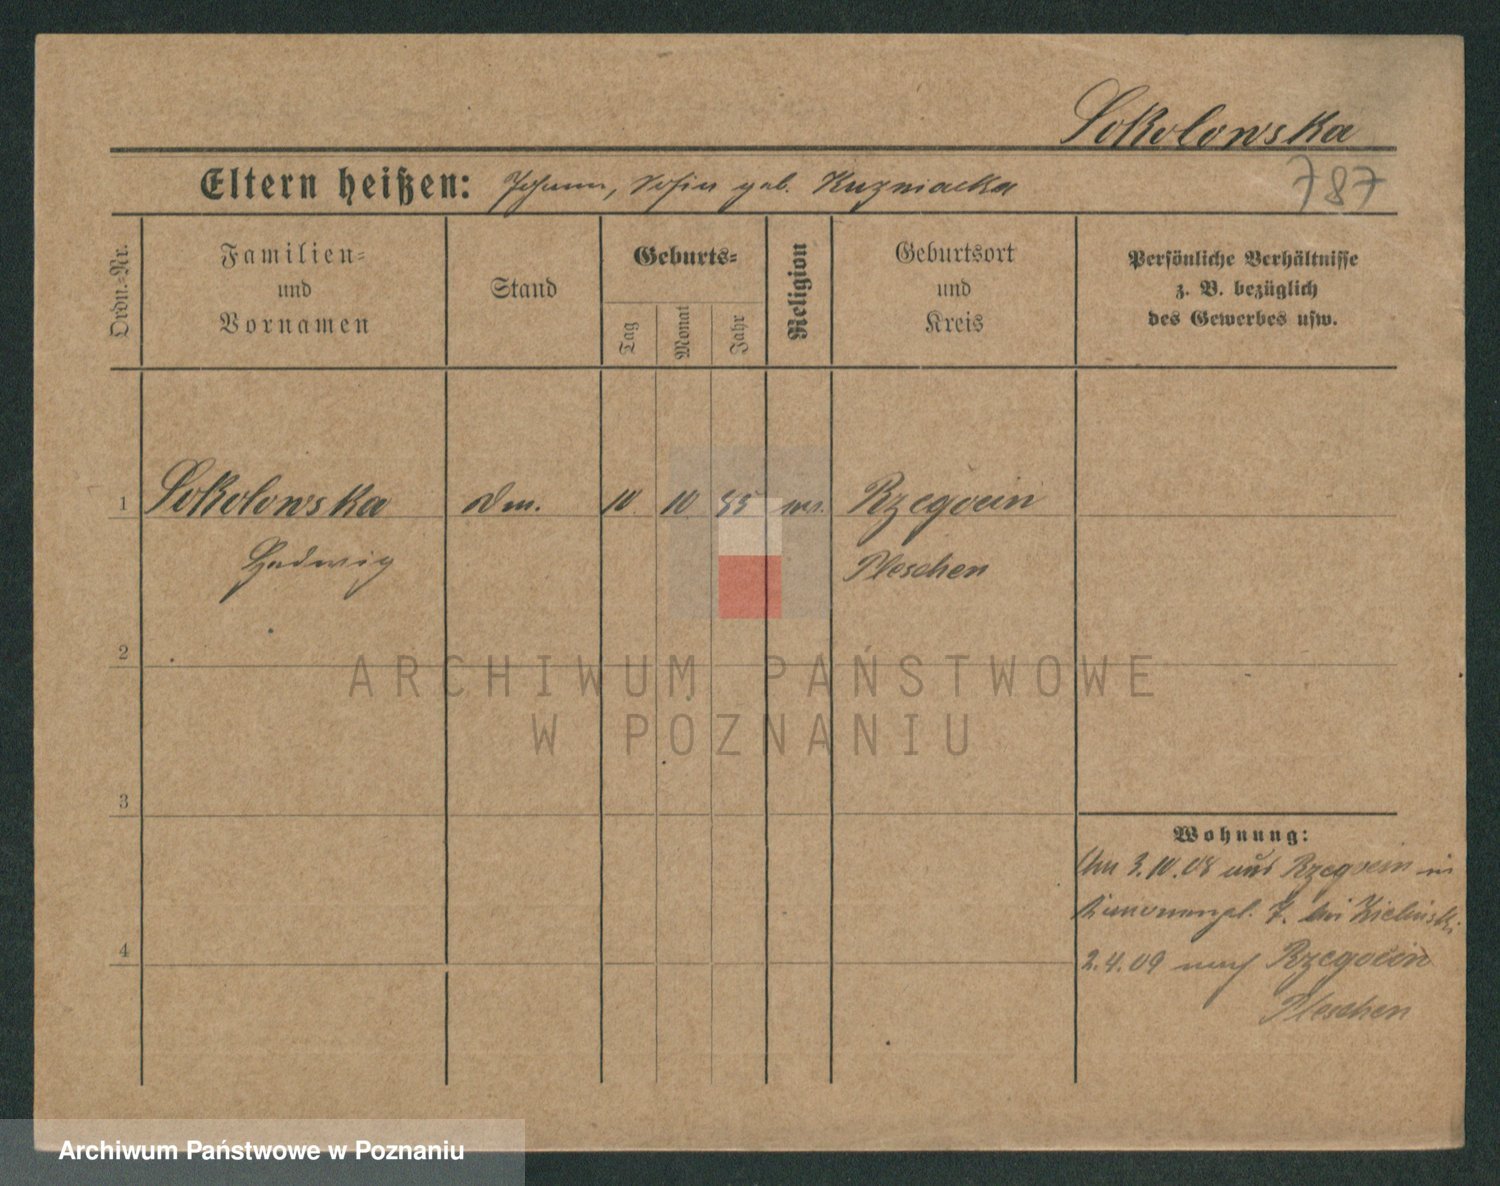 Sokolowska
787
Eltern heißen: Johann, Sofia geb. Kuzniacka
Ordn.=Nr.
Familien= und Vornamen
Stand
Geburts=
Tag
Monat
Jahr
Religion
Geburtsort und Kreis
Persönliche Verhältnisse z. B. bezüglich des Gewerbes usw.
1 Sokolowska 10 10 85 Rzegocin
Hedwig Pleschen
2
3
4
Wohnung:
Am 3.10.08 aus Rzegocin in
7. bei Zielinski
2.4.09 nach Rzegocin
Pleschen
ARCHIWUM PAŃSTWOWE
W POZNANIU
Archiwum Państwowe w Poznaniu